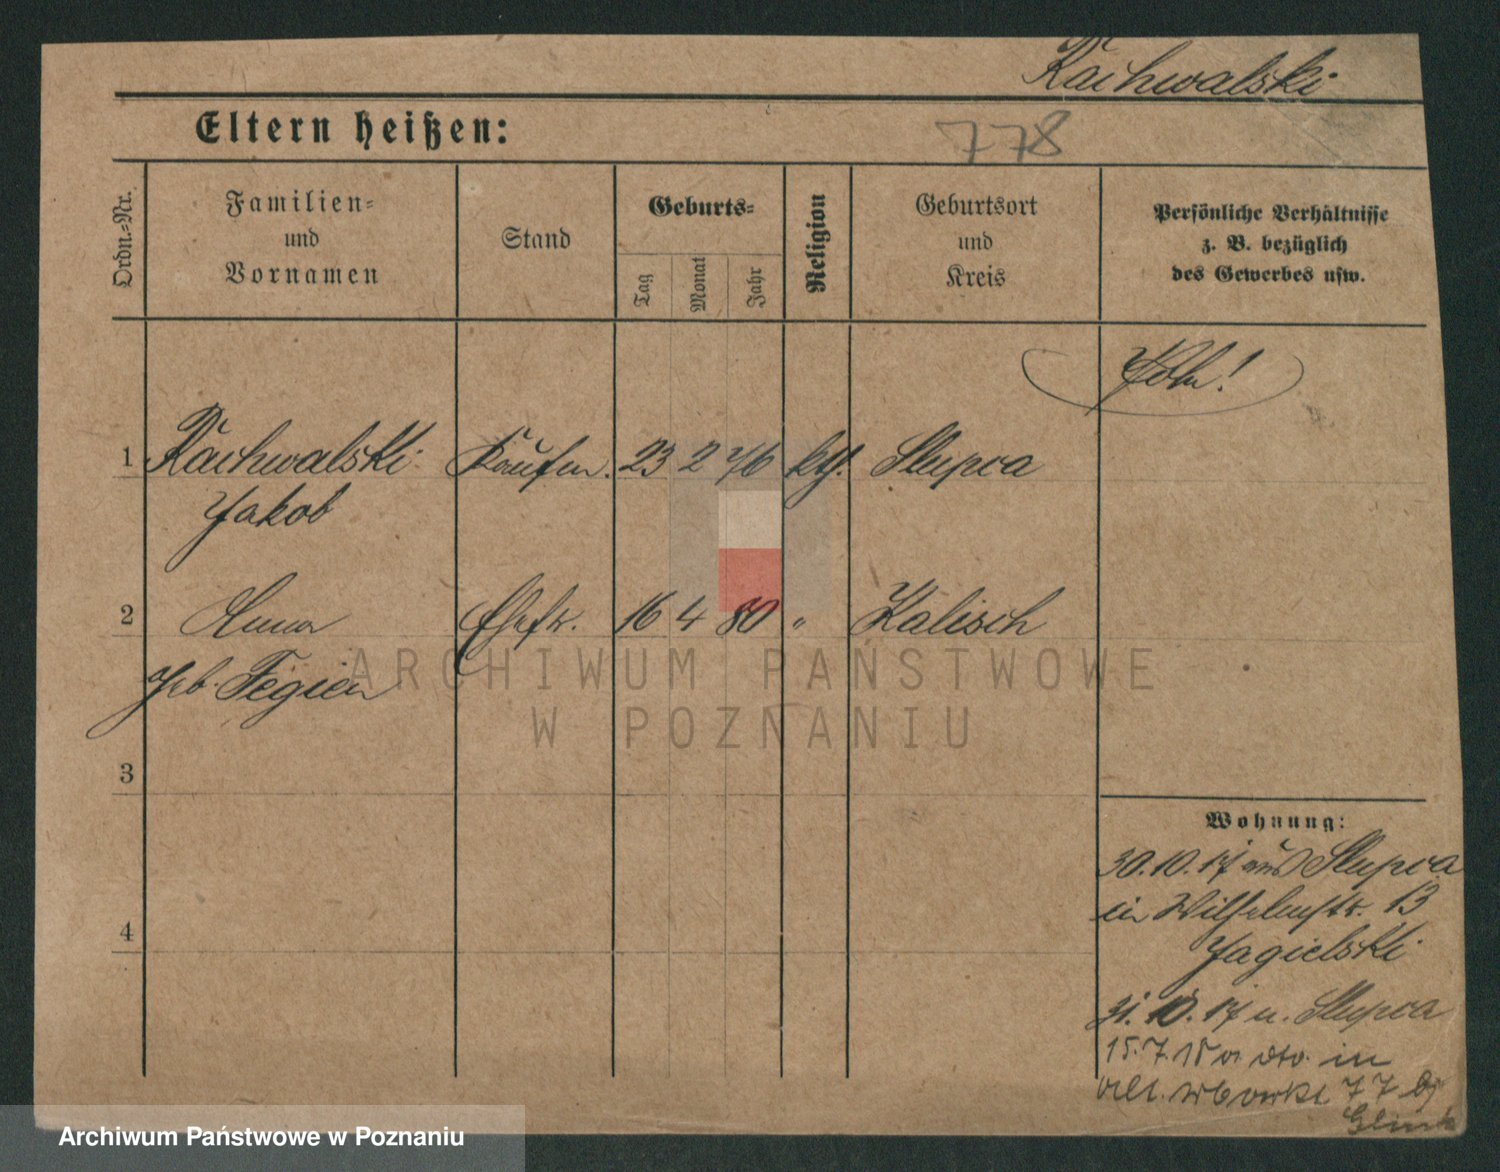 Rachwalski
Eltern heißen:
778
Ordn.-Nr.
Familien-
und
Vornamen
Stand
Geburts-
Tag
Monat
Jahr
Religion
Geburtsort
und
Kreis
Persönliche Verhältnisse
z. B. bezüglich
des Gewerbes usw.
1 Rachwalski Kaufm. 23 2 76 kth. Slupca
Jakob
2 Anna Ehefr. 16 4 80 " Kalisch
geb.
ARCHIWUM PAŃSTWOWE
W POZNANIU
3
4
Wohnung:
30.10.17 aus Slupca
in Wilhelmstr. 13
Jagielski
31.10.17 n. Slupca
15.7.18 v. dto. in
77 bj
Archiwum Państwowe w Poznaniu